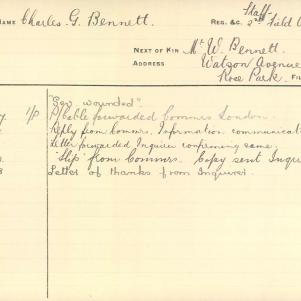 NAME Charles G. Bennett. REG. &C. Staff- 2nd Field A
NEXT OF KIN Mr. W. Bennett.
ADDRESS Watson Avenue
Rose Park. FIL
"Sev. wounded".
1/p Cable forwarded Commrs London.
Reply from Commrs. Information communicat
Letter forwarded Inquirer confirming same.
"Slip" from Commrs. Copy sent Inqui
8 Letter of thanks from Inquirer.